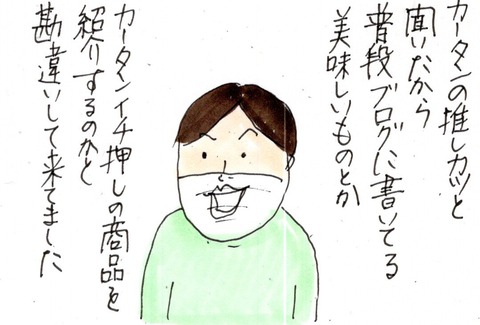 カータンの推しカツと
聞いたから
普段ブログに書いてる
美味しいものとか
カータンイチ押しの商品を
紹介するのかと
勘違いして来てました